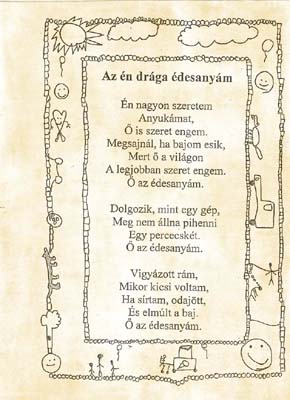 Az én drága édesanyám
Én nagyon szeretem
Anyukámat,
Ő is szeret engem.
Megsajnál, ha bajom esik,
Mert ő a világon
A legjobban szeret engem.
Ő az édesanyám.
Dolgozik, mint egy gép,
Meg nem állna pihenni
Egy percecskét.
Ő az édesanyám.
Vigyázott rám,
Mikor kicsi voltam,
Ha sírtam, odajött,
És elmúlt a baj.
Ő az édesanyám.